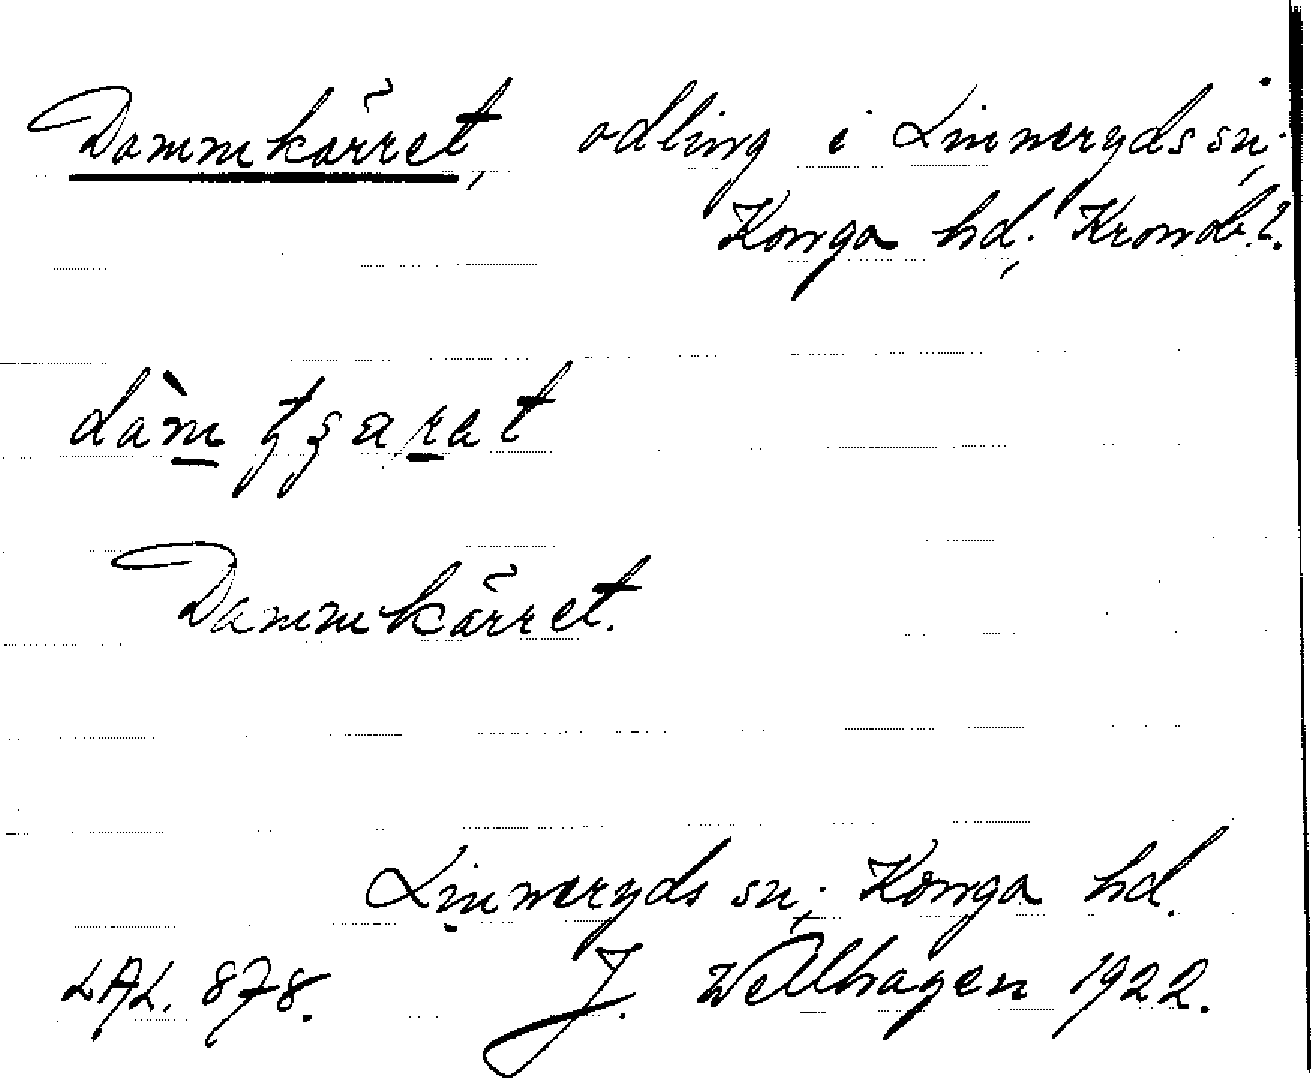 Dammkärret, odling i Linneryds sn;
Konga hd; Kronob. l.
Dammkärret.
Linneryds sn; Konga hd.
LAL. 878. J. Wellhagen 1922.